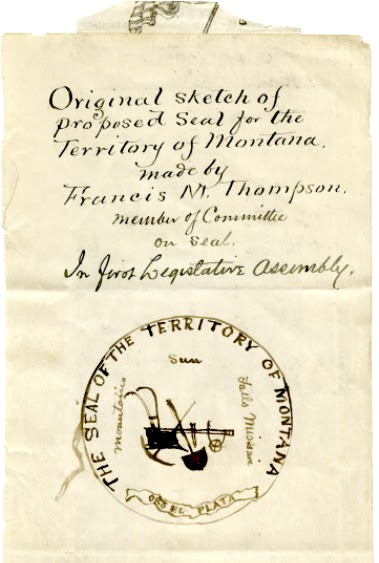 Original sketch of
proposed Seal for the
Territory of Montana.
made by
Francis M. Thompson.
member of Committee
on Seal.
In first Legislative Assembly.
THE SEAL OF THE TERRITORY OF MONTANA
Sun
Mountains
Falls Missouri
PLATA